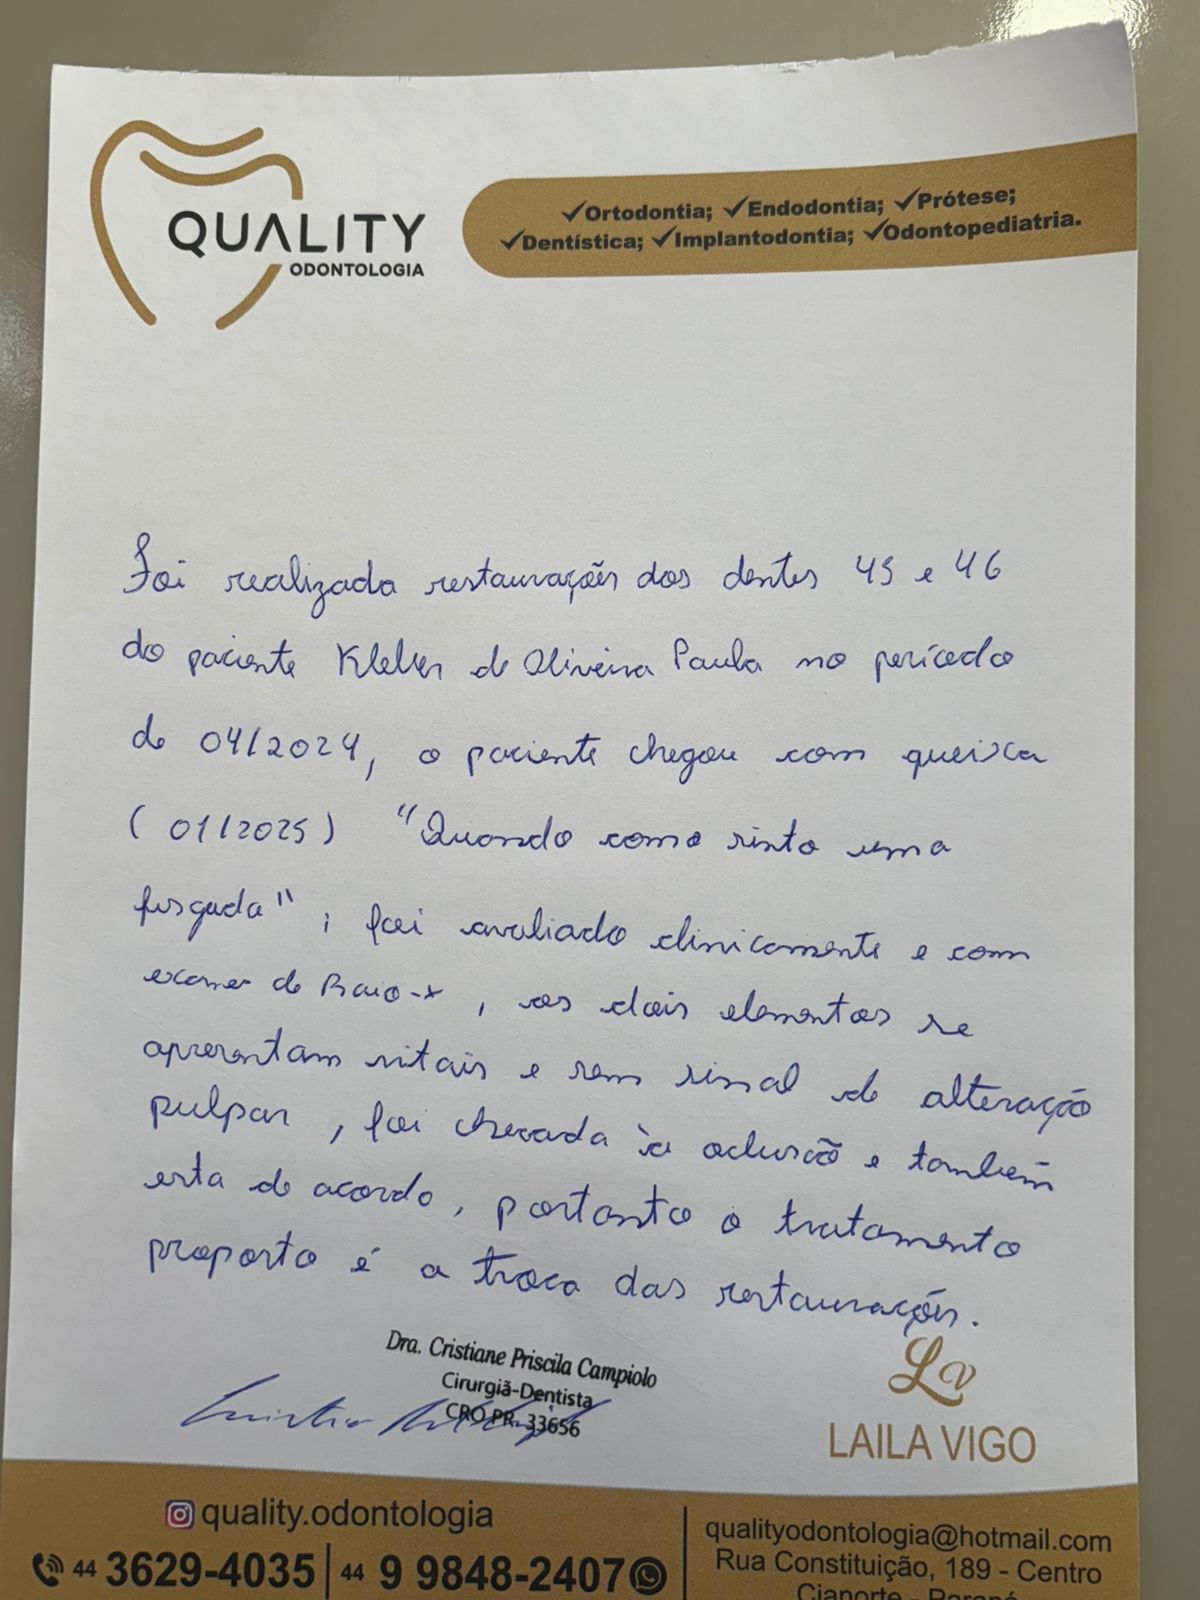 QUALITY
ODONTOLOGIA
✓Ortodontia; ✓Endodontia; ✓Prótese;
✓Dentística; ✓Implantodontia; ✓Odontopediatria.
Foi realizada restaurações dos dentes 45 e 46
do paciente Kleber de Oliveira Paula no período
de 04/2024, o paciente chegou com queixa
(01/2025) "Quando como sinto uma
fisgada" ; foi avaliado clinicamente e com
exames de Raio-x, os dois elementos se
apresentam vitais e sem sinal de alteração
pulpar, foi checada à oclusão e também
esta de acordo, portanto o tratamento
proposto é a troca das restaurações.
Dra. Cristiane Priscila Campiolo
Cirurgiã-Dentista
CRO PR. 33656
LV
LAILA VIGO
quality.odontologia
44 3629-4035 | 44 9 9848-2407
qualityodontologia@hotmail.com
Rua Constituição, 189 - Centro
Cianorte - Paraná